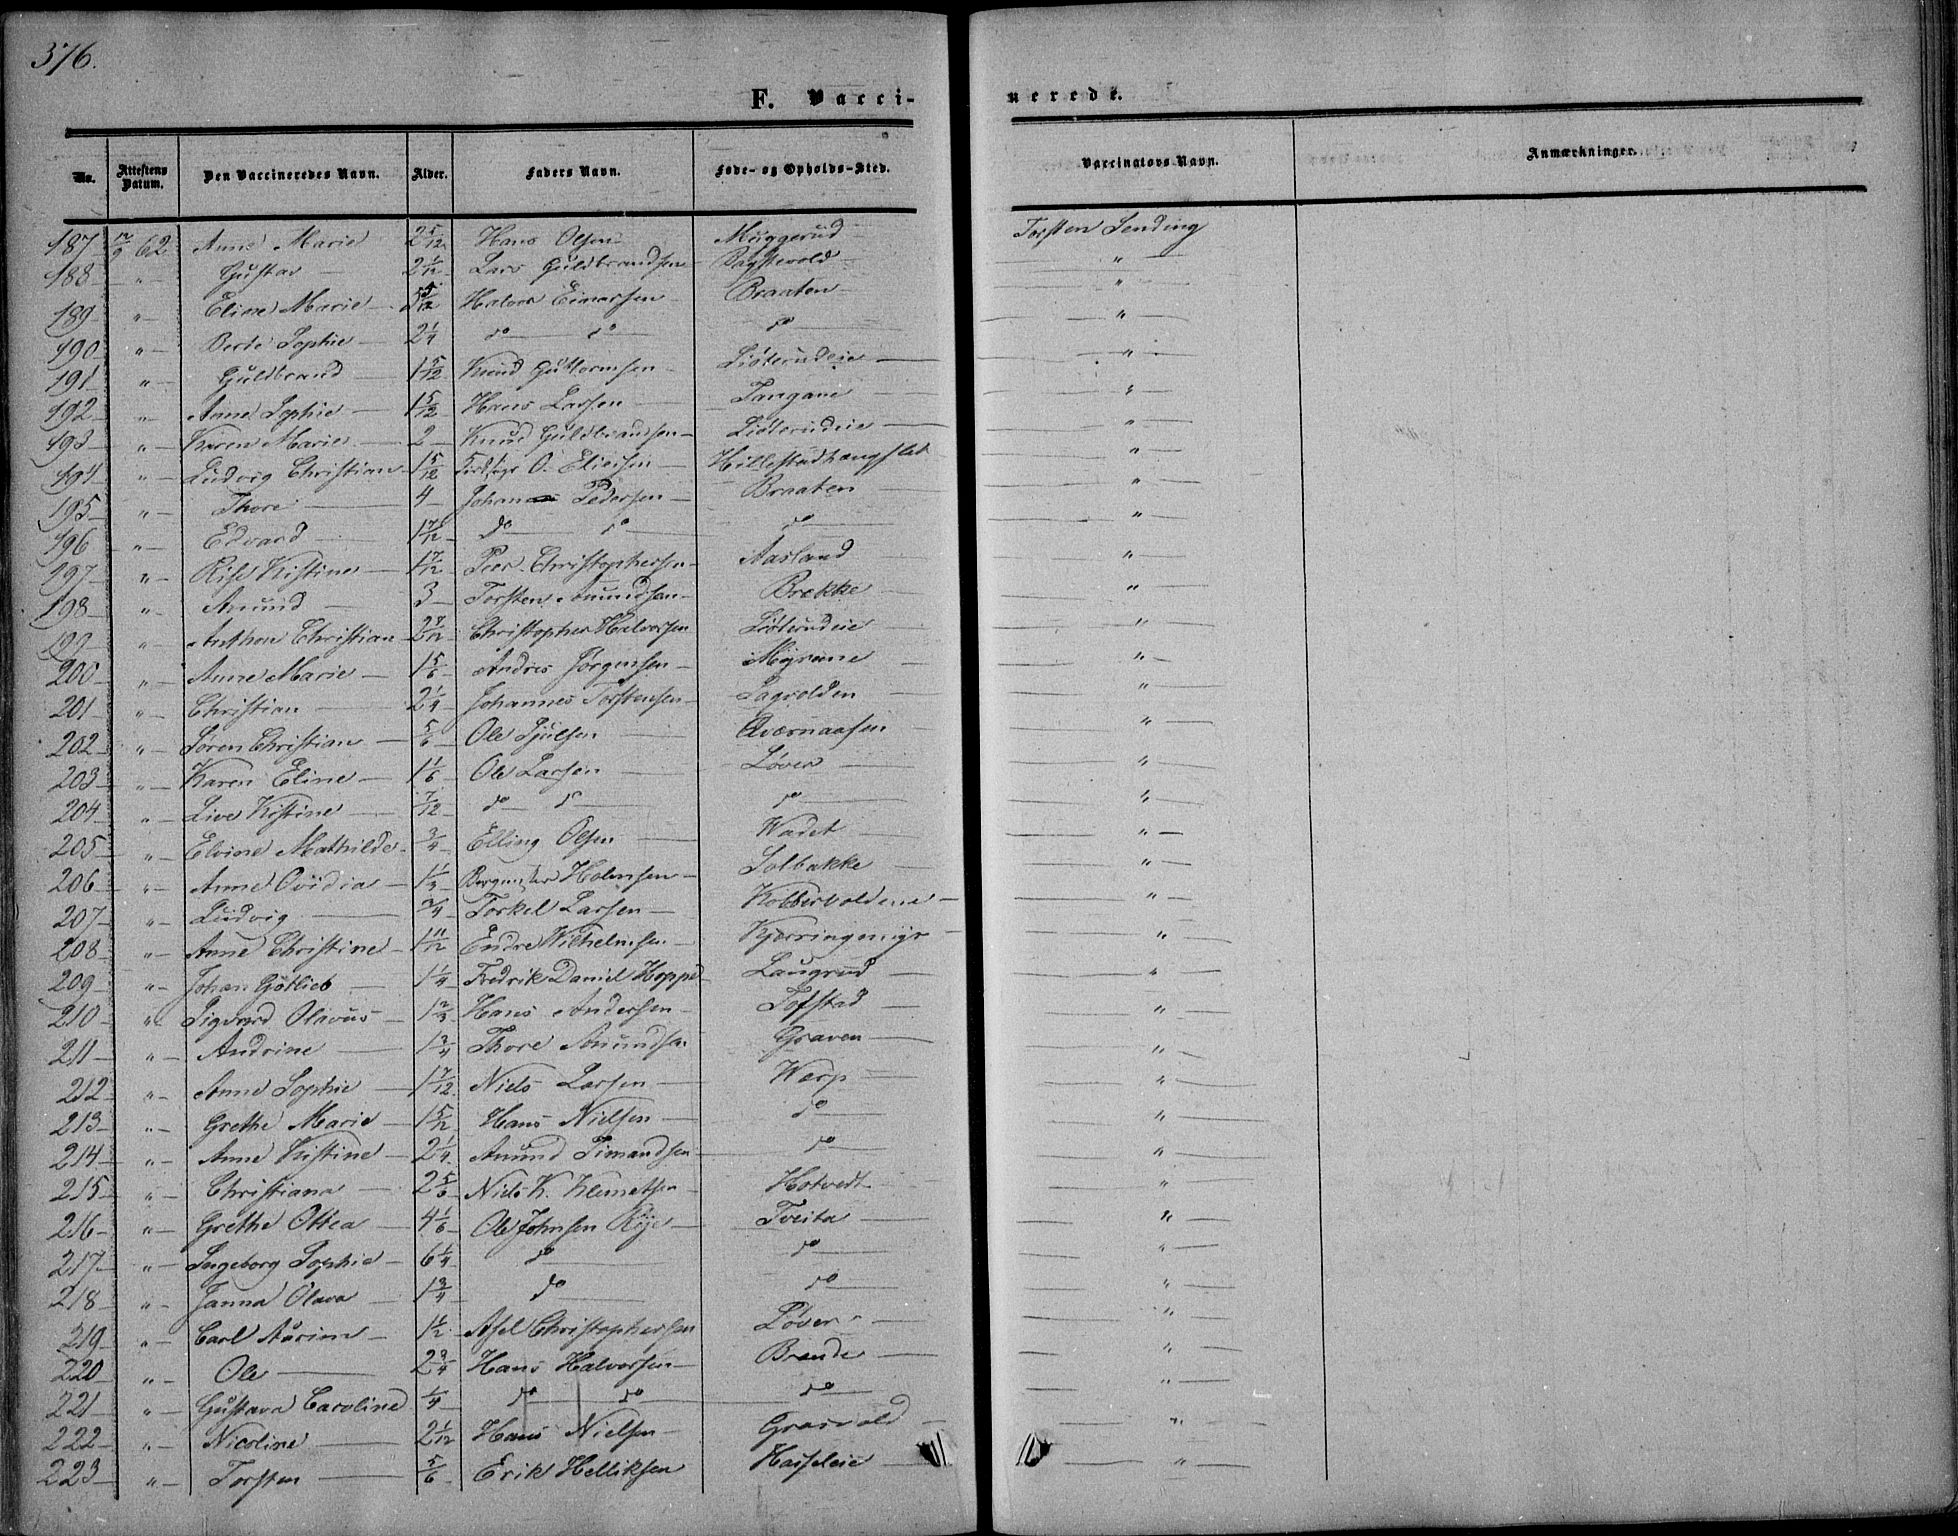 376.
F. Vacci-
nerede.
No. Attestens Datum. Den Vaccineredes Navn. Alder. Faders Navn. Føde- og Opholds-Sted. Vaccinatovs Navn. Anmærkninger.
187 12/9 62 Anne Marie 2 5/12 Hans Olsen Muggerud Torsten Sending
188 " Gustav 2 1/12 Lars Guldbrandsen "
189 " Eline Marie 5/12 Halvor Einersen Braaten "
190 " Berte Sophie 2 1/4 do do do "
191 " Guldbrand 1 5/12 Knud Guttormsen Liøterudeie "
192 " Anne Sophie 1 5/12 Hans Larsen Tangane "
193 " Karen Marie 2 Knud Guldbrandsen Liøterudeie "
194 " Ludvig Christian 1 5/12 O. Eliesen "
195 " Thore 4 Johan Pedersen Braaten "
196 " Edvard 1 7/12 do do do "
197 " Rise Kistine 1 7/12 Peer Christophersen Aasland "
198 " Amund 3 Torsten Amundsen Brekke "
199 " Anthon Christian 2 7/12 Christopher Halvorsen Liøterudeie "
200 " Anne Marie 1 5/6 Andres Jørgensen Myrene "
201 " Christian 2 1/4 Johannes Torstensen Sagvolden "
202 " Søren Christian 5/6 Ole Qværnaasen "
203 " Karen Eline 1 1/6 Ole Larsen Løver "
204 " Live Kistine 7/12 do do do "
205 " Elvine Mathilde 3/4 Elling Olsen Wadet "
206 " Anne Ovidia 1 1/3 Holmsen Solbakke "
207 " Ludvig 3/4 Torkel Larsen Kobbervoldene "
208 " Anne Christine 1 11/12 Endre Wilhelmsen Kjærringmyr "
209 " Johan Gotlieb 1 1/4 Fredrik Daniel Hoppe Laugrud "
210 " Sigvard Olavus 1 2/3 Hans Andersen Tofstad "
211 " Andrine 1 3/4 Thore Amundsen Graven "
212 " Anne Sophie 1 7/12 Niels Larsen Warp "
213 " Grethe Marie 1 5/12 Hans Nielsen do "
214 " Anne Kistine 2 1/4 Amund Simandsen do "
215 " Christiana 2 5/6 Niels K. Klemetsen Hotvedt "
216 " Grethe Ottea 4 1/6 Ole Johnsen Tveita "
217 " Ingeborg Sophie 6 1/4 do do "
218 " Janna Olava 1 3/4 do do "
219 " Carl 1 1/2 Christophersen Løver "
220 " Ole 2 3/4 Hans Halvorsen Brende "
221 " Gustava Caroline 1/4 do do do "
222 " Nicoline 2 1/12 Hans Nielsen Grasvold "
223 " Torsten 5/6 Erik Helliksen Hasseleie "